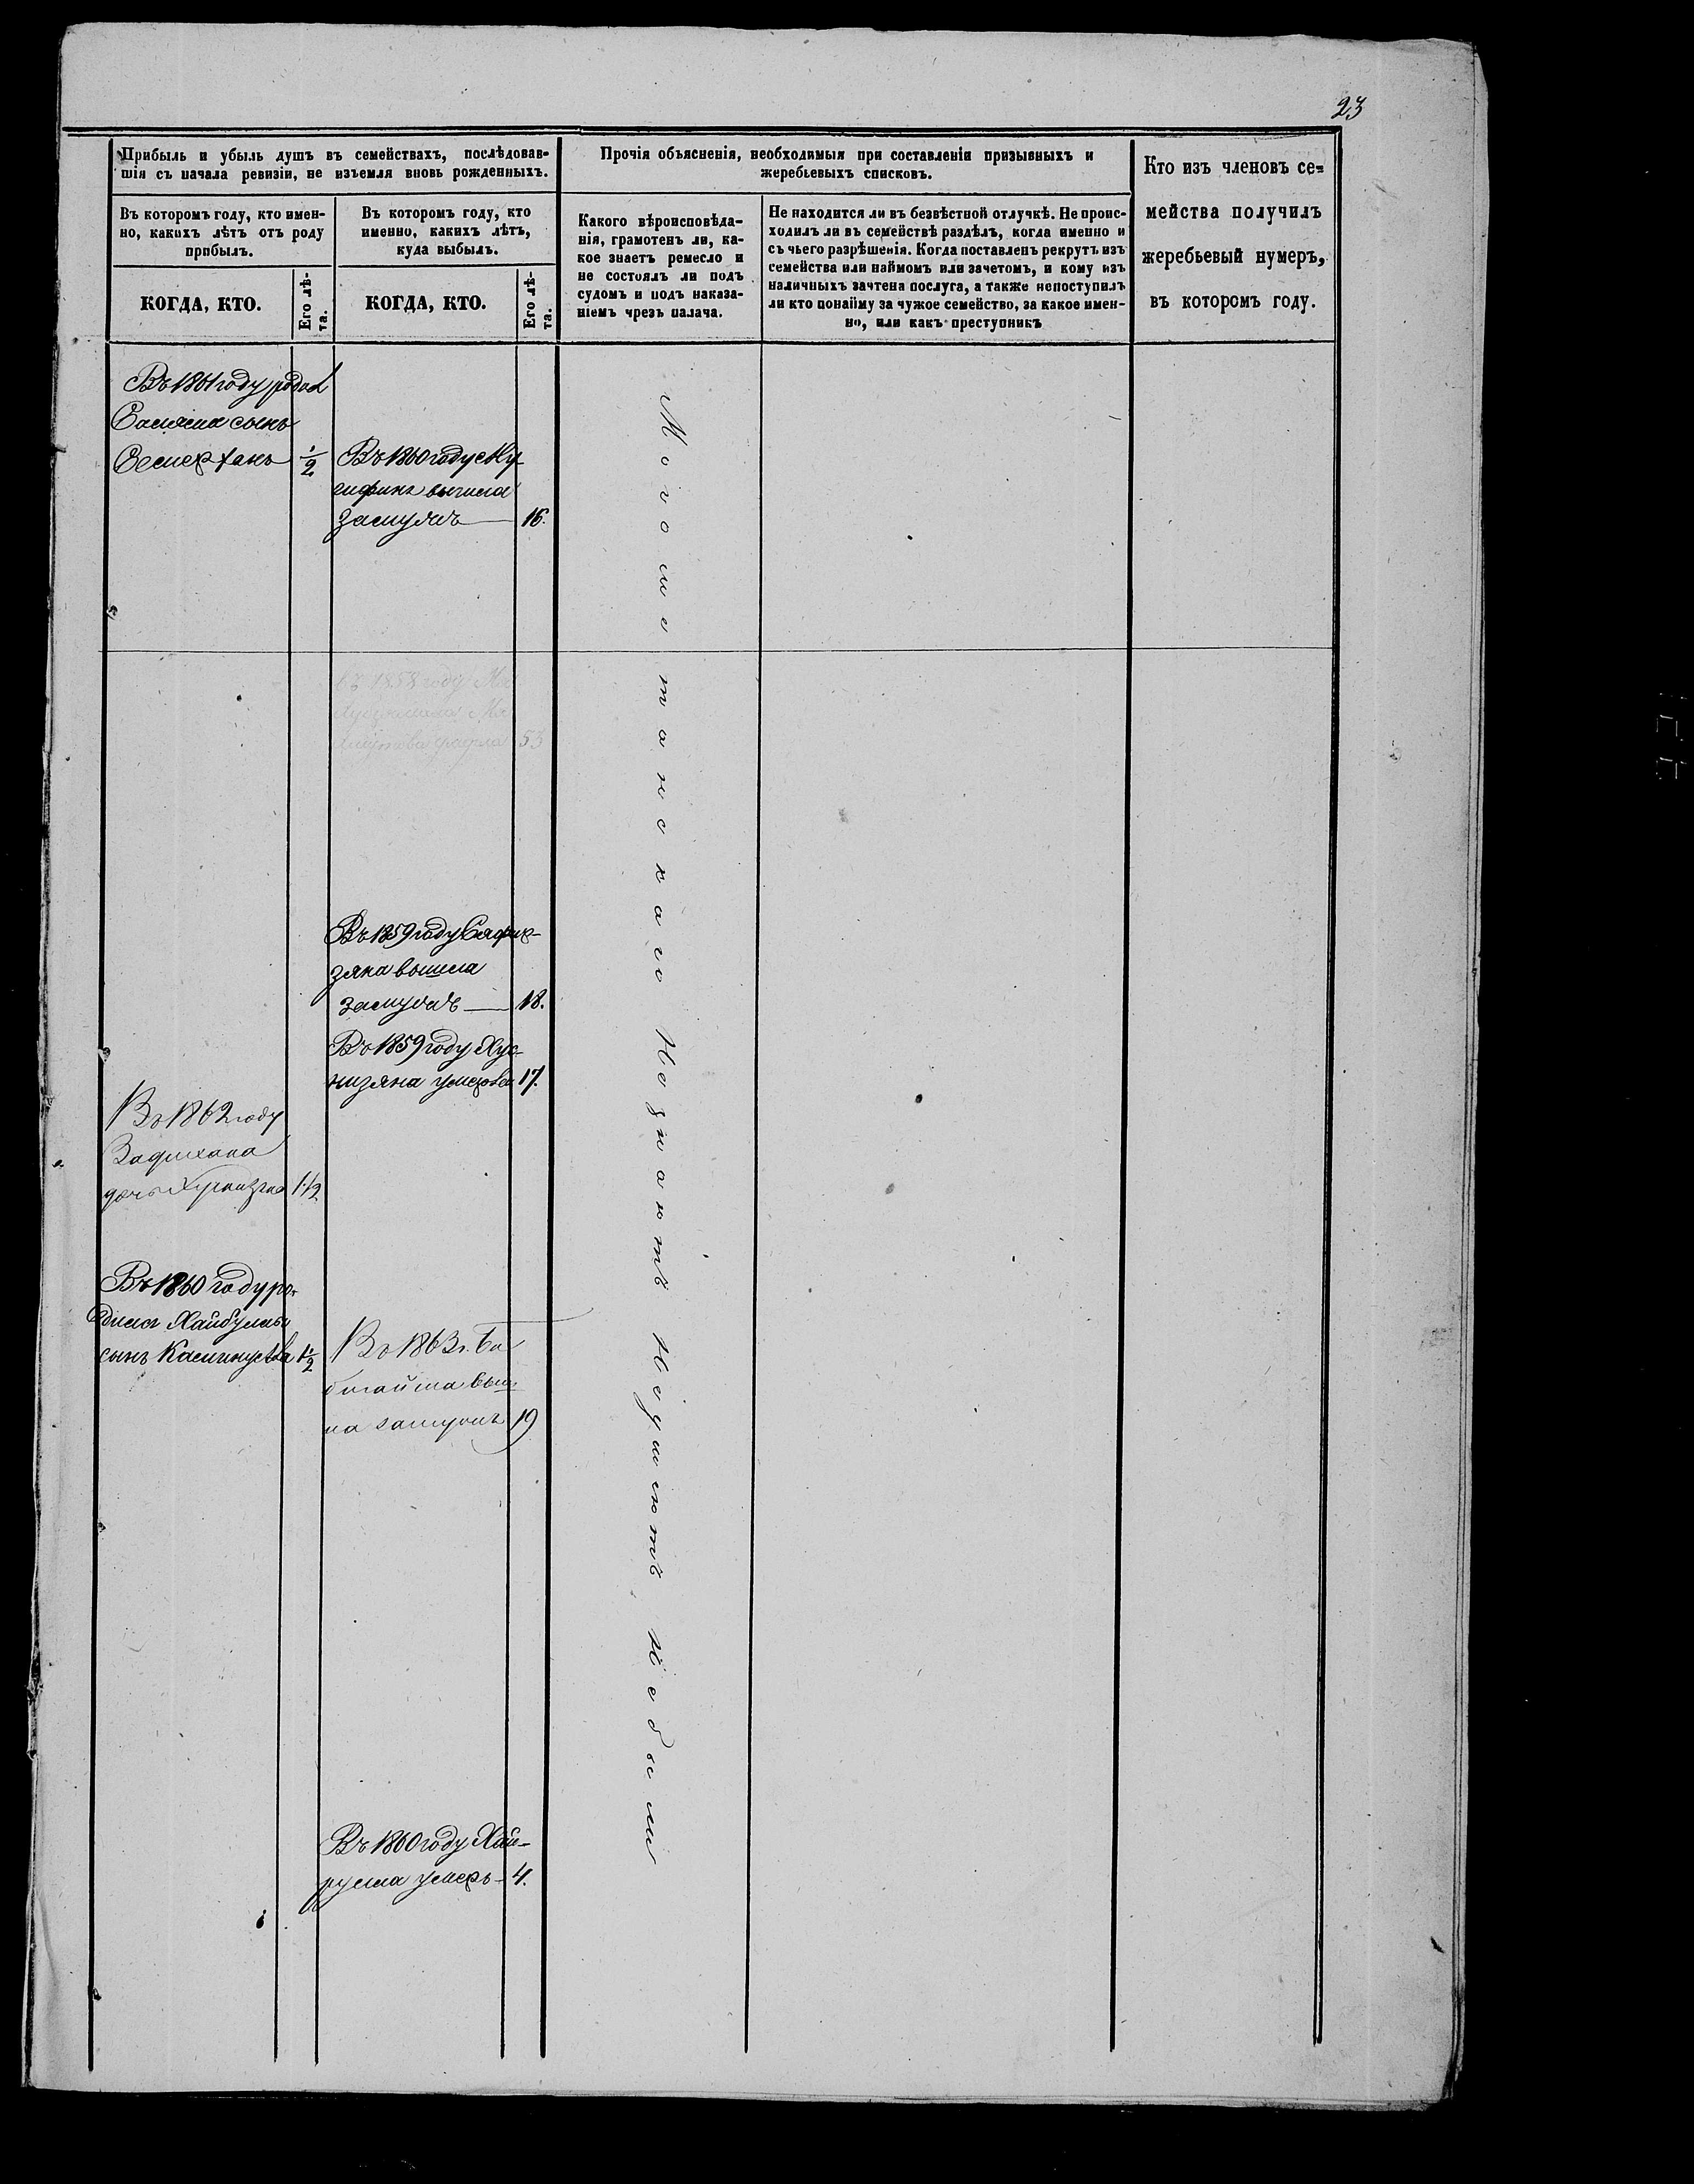 23
Прибыль и убыль душъ въ семействахъ, послѣдовав-
шія съ начала ревизіи, не изъемля вновь рожденныхъ.
Въ которомъ году, кто имен-
но, какихъ лѣтъ отъ роду
прибылъ.
КОГДА, КТО.
Его лѣ-
та.
Въ которомъ году, кто
именно, какихъ лѣтъ,
куда выбылъ.
КОГДА, КТО.
Его лѣ-
та.
Прочія объясненія, необходимыя при составленіи призывныхъ и
жеребьевыхъ списковъ.
Какого вѣроисповѣда-
нія, грамотенъ ли, ка-
кое знаетъ ремесло и
не состоялъ ли подъ
судомъ и подъ наказа-
ніемъ чрезъ палача.
Не находится ли въ безвѣстной отлучкѣ. Не проис-
ходилъ ли въ семействѣ раздѣлъ, когда именно и
съ чьего разрѣшенія. Когда поставленъ рекрутъ изъ
семейства или наймомъ или зачетомъ, и кому изъ
наличныхъ зачтена послуга, а также непоступилъ
ли кто понайму за чужое семейство, за какое имен-
но, или какъ преступникъ
Кто изъ членовъ се-
мейства получилъ
жеребьевый нумеръ,
въ которомъ году.
Въ 1861 году
сынъ
1/2
Въ 1860 году Му
вышла
замужъ 16.
въ 1858 году
53
Въ 1859 году Сафир-
зяна вышла
замужъ 18.
Въ 1859 году Хус-
низяна умерла 17.
Въ 1862 году
дочь 1 1/2
Въ 1860 году ро-
дился
сынъ 1 1/2
Въ 1863 г. Би
выш
ла замужъ 19
Въ 1860 году Хай-
рулла умеръ 4.
Могометанскаго Незнаютъ Неумеютъ Небыли